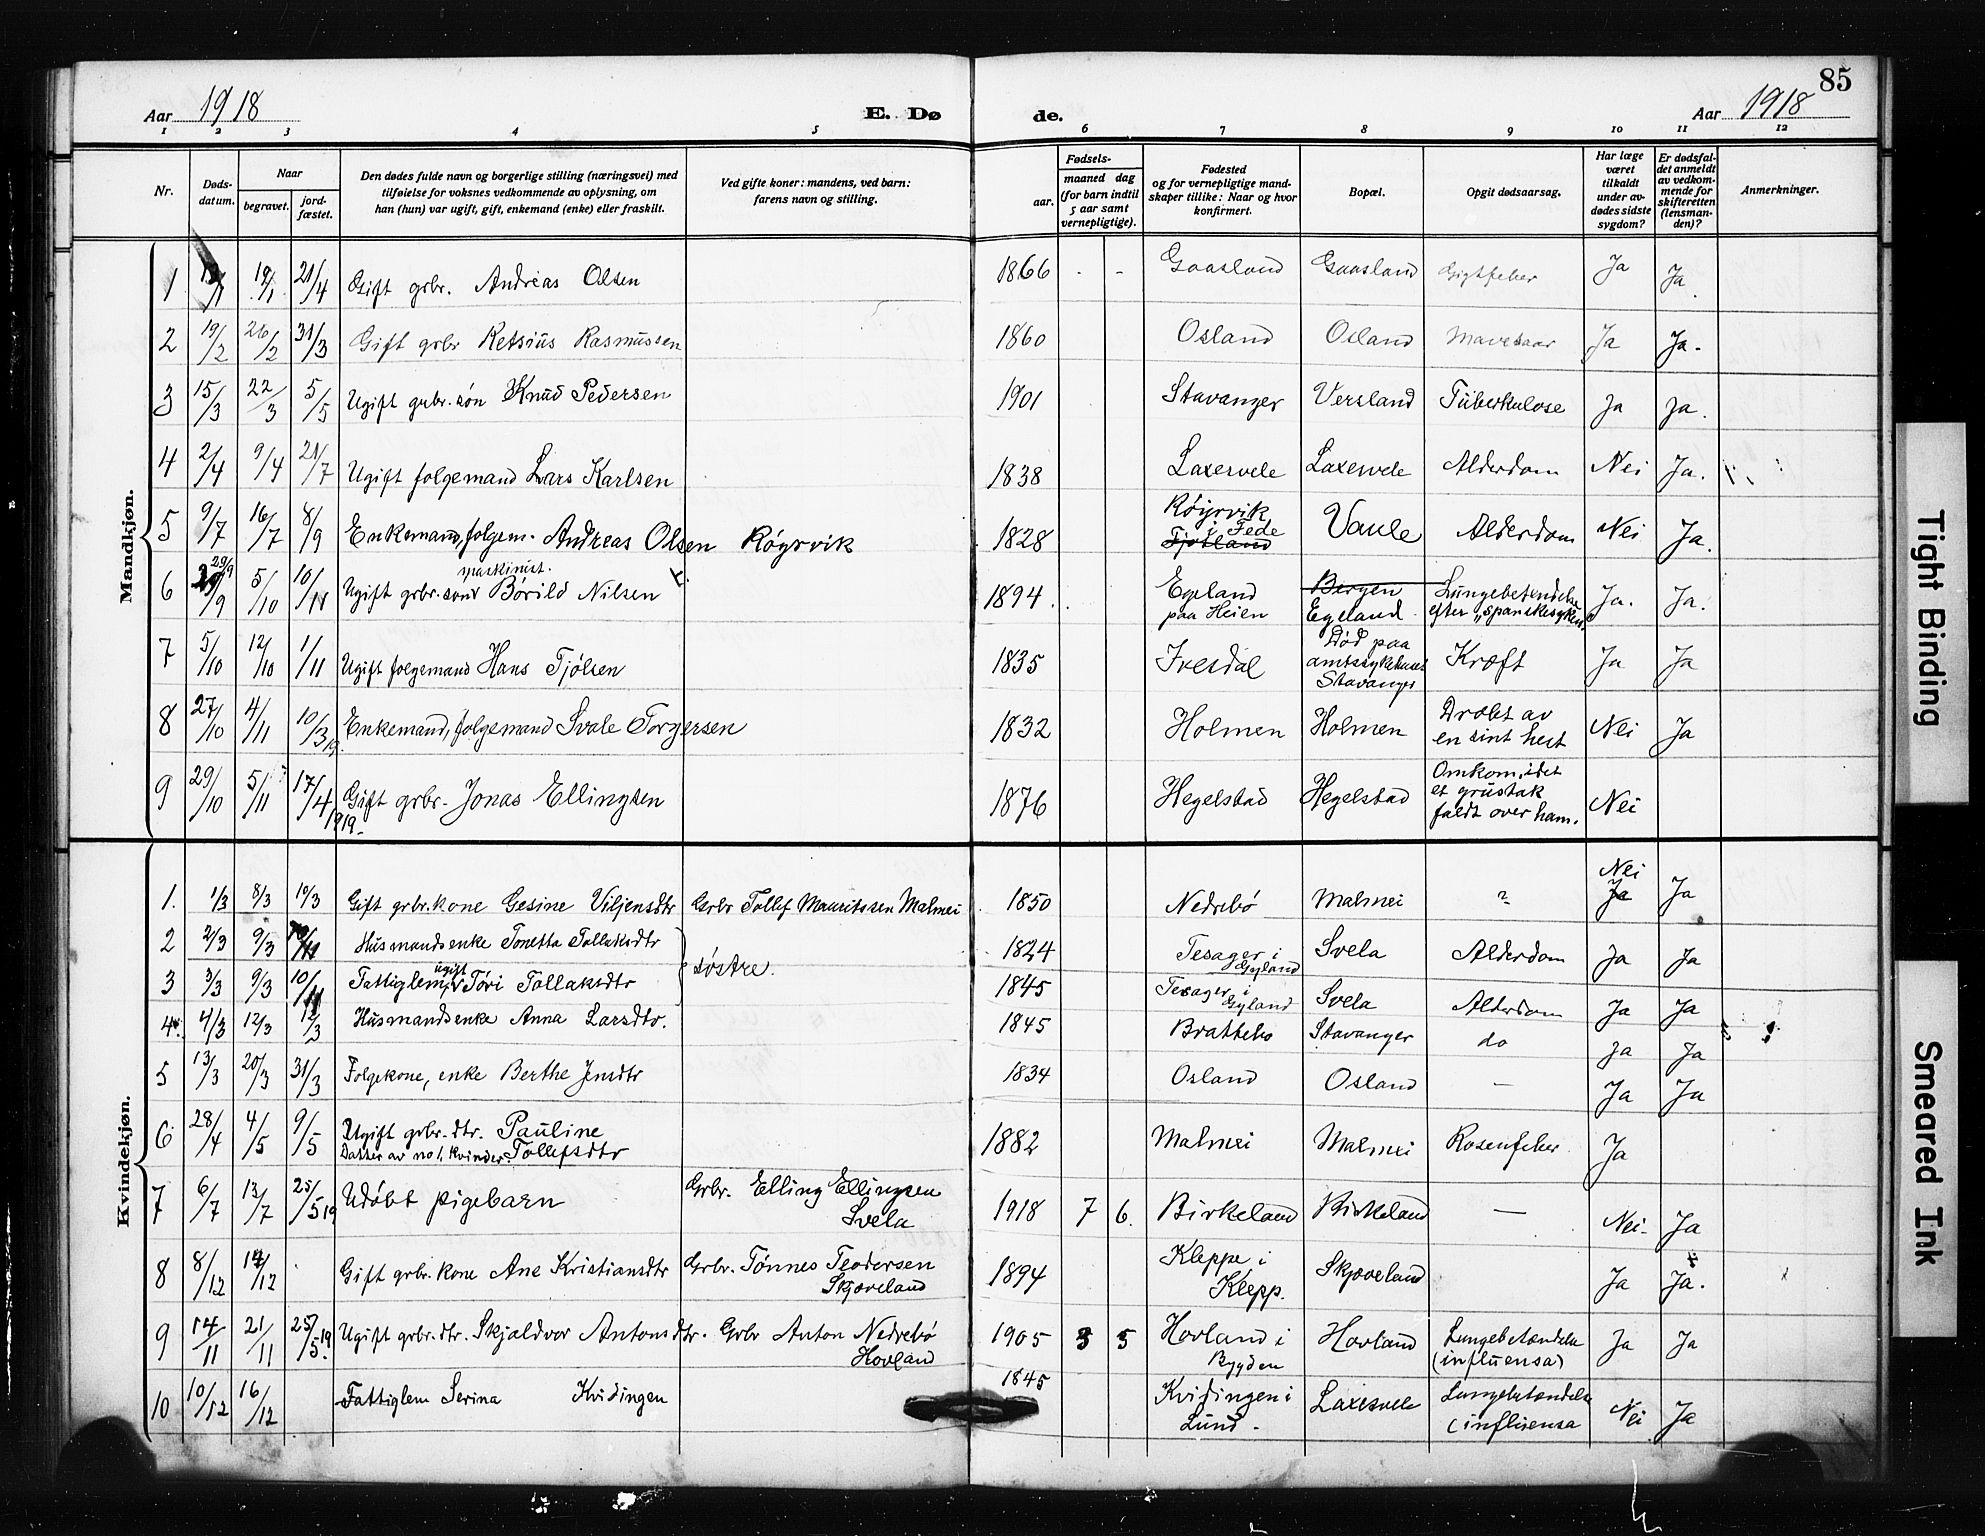 85
Aar 1918 E. Dø de. Aar 1918
1 2 3 4 5 6 7 8 9 10 11 12
Nr. Døds-datum. Naar begravet. jord-fæstet. Den dødes fulde navn og borgerlige stilling (næringsvei) med tilføielse for voksnes vedkommende av oplysning, om han (hun) var ugift, gift, enkemand (enke) eller fraskilt. Ved gifte koner: mandens, ved barn: farens navn og stilling. Fødsels- aar. maaned dag (for barn indtil 5 aar samt vernepligtige). Fødested og for vernepligtige mand-skaper tillike: Naar og hvor konfirmert. Bopæl. Opgit dødsaarsag. Har læge været tilkaldt under av-dødes sidste sygdom? Er dødsfal-det anmeldt av vedkom-mende for skifteretten (lensman-den)? Anmerkninger.
Mandkjøn.
1 19/1 21/4 Gift grbr. Andreas Olsen 1866 - - Gaasland Gaasland Gigtfeber Ja Ja.
2 19/2 26/2 31/3 Gift grbr Retsius Rasmussen 1860 Osland Osland Mavesaar Ja Ja.
3 15/3 22/3 5/5 Ugift grbr. søn Knud Pedersen 1901 Stavanger Versland Tüberkulose Ja Ja.
4 2/4 9/4 21/7 Ugift folgemand Lars Karlsen 1838 Laxesvele Laxesvele Alderdom Nei Ja.
5 9/7 16/7 8/9 Enkemand, folgem. Andreas Olsen Røyrvik 1828 Røyrvik i Fede Tjotland Vaule Alderdom Nei Ja.
6 29/9 5/10 10/11 Ugift grbr. søn Børild Nilsen 1894. Egeland paa Heien Bergen Egeland Lungebetendelse efter "spanskesyken" Ja. Ja.
7 5/10 12/10 1/11 Ugift folgemand Hans Tjølsen 1835 Ivesdal Død paa amtssykehuset Stavanger Kræft Ja Ja
8 27/10 4/11 10/3 19. Enkemand, folgemand Svale Torgersen 1832 Holmen Holmen Dræbt av en sint hest Nei Ja
9 29/10 5/11 17/4 1919. Gift grbr. Jonas Ellingsen 1876 Hegelstad Hegelstad Omkom, idet et grustak faldt over ham. Nei
Kvindekjøn.
1. 1/3 8/3 10/3 Gift grbr. kone Gesine Viljensdtr Grbr Tollef Mauritssen Malmei 1850 Nedrebø Malmei ? Nei Ja Ja
2 2/3 9/3 Husmandsenke Tonetta Tollaksdtr søstre. 1824 Tesager i Gyland Svela Alderdom Ja Ja
3 3/3 9/3 10/11 Fattiglem, ugift Töri Tollaksdtr 1845 Tesager i Gyland Svela Alderdom Ja Ja
4. 4/3 12/3 12/3 Husmandsenke Anna Larsdtr. 1845 Brattebo Stavanger do Ja Ja
5 13/3 20/3 31/3 Folgekone, enke Berthe Jensdtr 1834 Osland Osland — Ja Ja
6 28/4 4/5 9/5 Ugift grbr. dtr. Pauline Tollefsdtr Datter av no 1. kvinder. 1882 Malmei Malmei Rosenfeber Ja
7 6/7 13/7 25/5 19 Udøbt pigebarn Grbr. Elling Ellingsen Svela 1918 7 6. Birkeland Birkeland — Nei. Ja
8 8/12 14/12 Gift grbr. kone Ane Kristiansdtr Grbr. Tønnes Teodorsen Skjæveland 1894 Kleppe i Klepp. Skjæveland Ja Ja.
9 14/11 21/11 25/5 19. Ugift grbr. dtr. Skjaldvor Antonsdtr. Grbr Anton Nedrebø Hovland 1905 3 5 Hovland i Bygden Hovland Lungebetændelse (influensa) Ja Ja
10 10/12 16/12 Fattiglem Serina Kvidingen 1845 Kvidingen i Lund. Laxesvele Lungebetændelse (influensa Nei Ja
Tight Binding
Smeared Ink